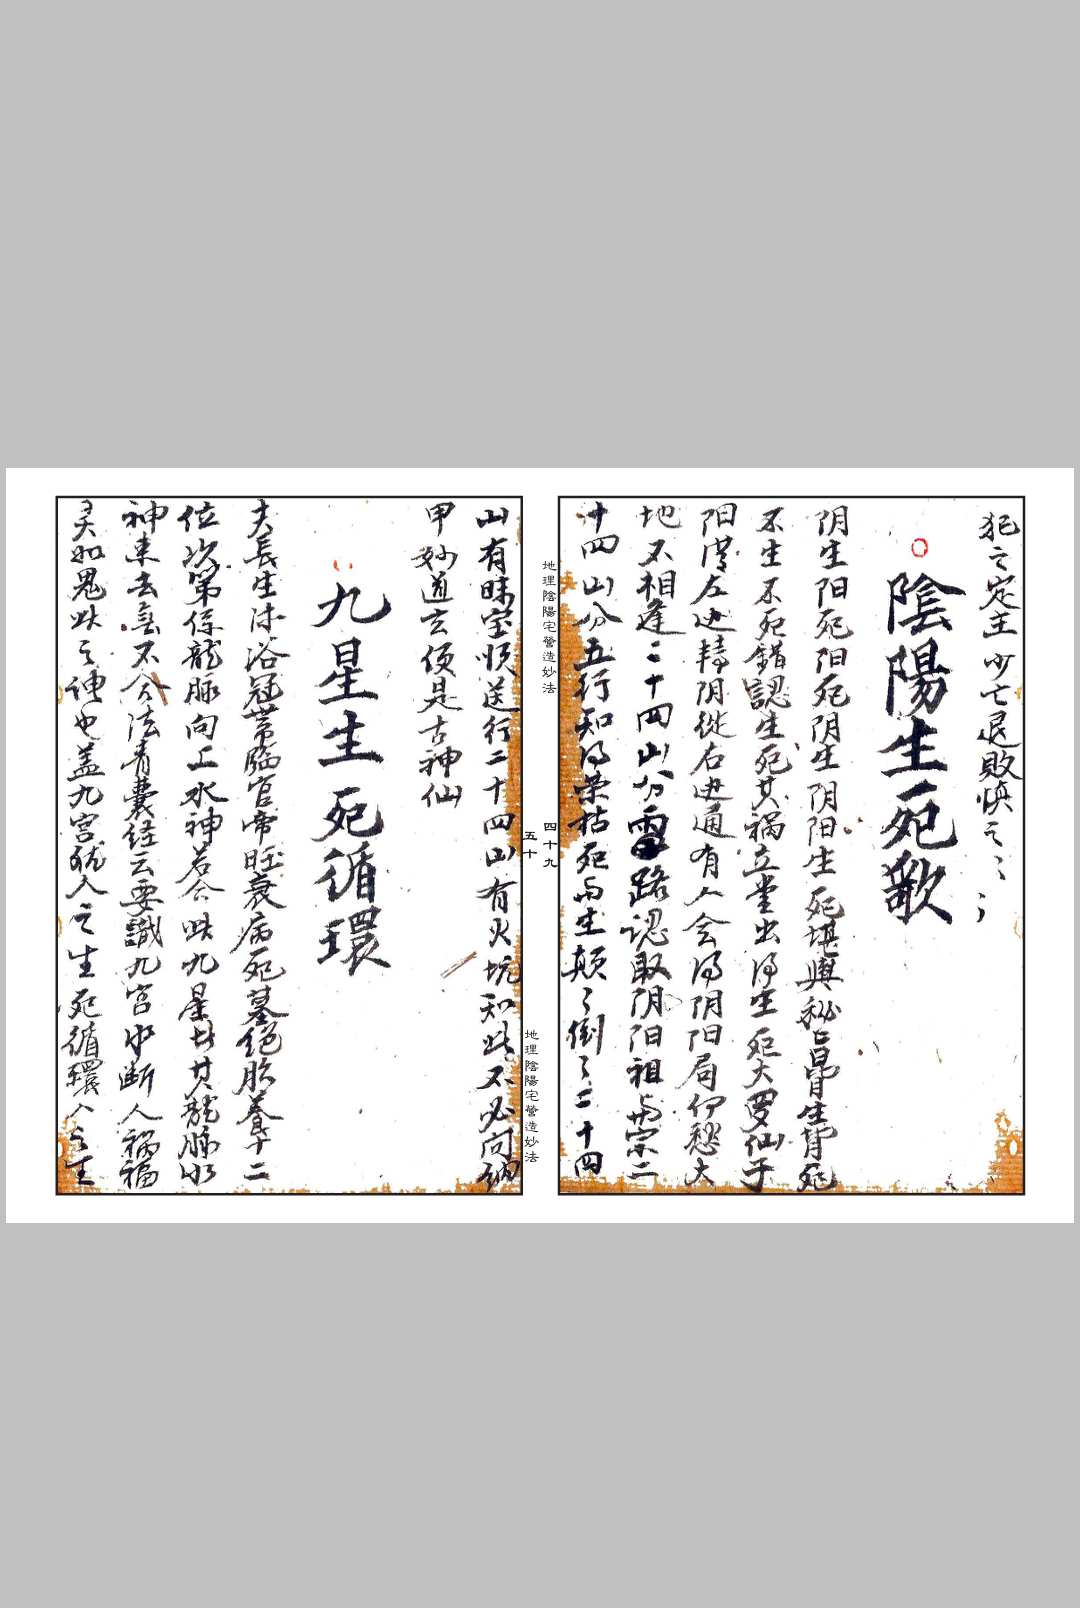 犯之定主少亡退敗慎之〻〻
陰陽生死歌
阴生阳死阳死阴生阴阳生死堪輿秘旨昴肖生肖死
不生不死錯認生死其禍立堂出得生死大罗仙手
阳從左边轉阴從右边通有人会得阴阳局何愁大
地不相逢二十四山分路認取阴阳祖与宗二
十四山分五行知得荣枯死与生颠〻倒〻二十四
地理陰陽宅營造妙法
四十九
山有珠宝順逆行二十四山有火坑知此不必问納
甲妙道玄便是古神仙
九星生死循環
夫長生沐浴冠帯臨官帝旺衰病死墓绝胎养十二
位次第係龍脉向上水神若合此九星方其龍脉水
神来去無不合法青囊经云要識九宮中断人禍福
灵如鬼此之神也盖九宮犹人之生死循環人之生
五十
地理陰陽宅營造妙法